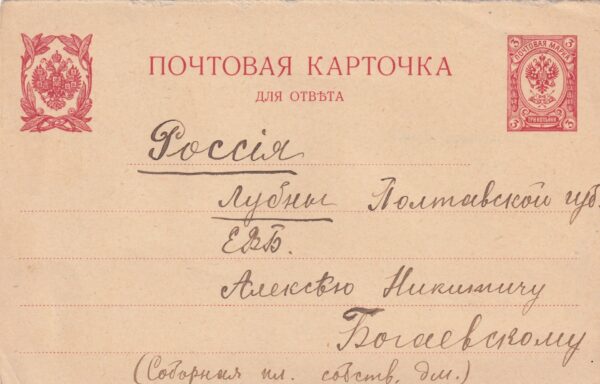 ПОЧТОВАЯ КАРТОЧКА
ДЛЯ ОТВѢТА
3 ПОЧТОВАЯ МАРКА 3
3 ТРИ КОПѢЙКИ 3
Россія
Лубны Полтавской губ.
ЕВБ.
Алексѣю Никитичу
Богаевскому
(Соборная пл. собств. дм.)